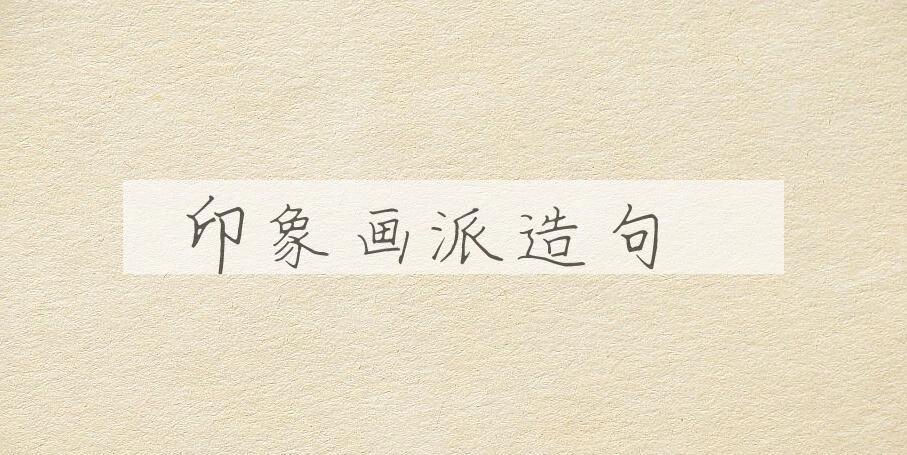 印象画派造句